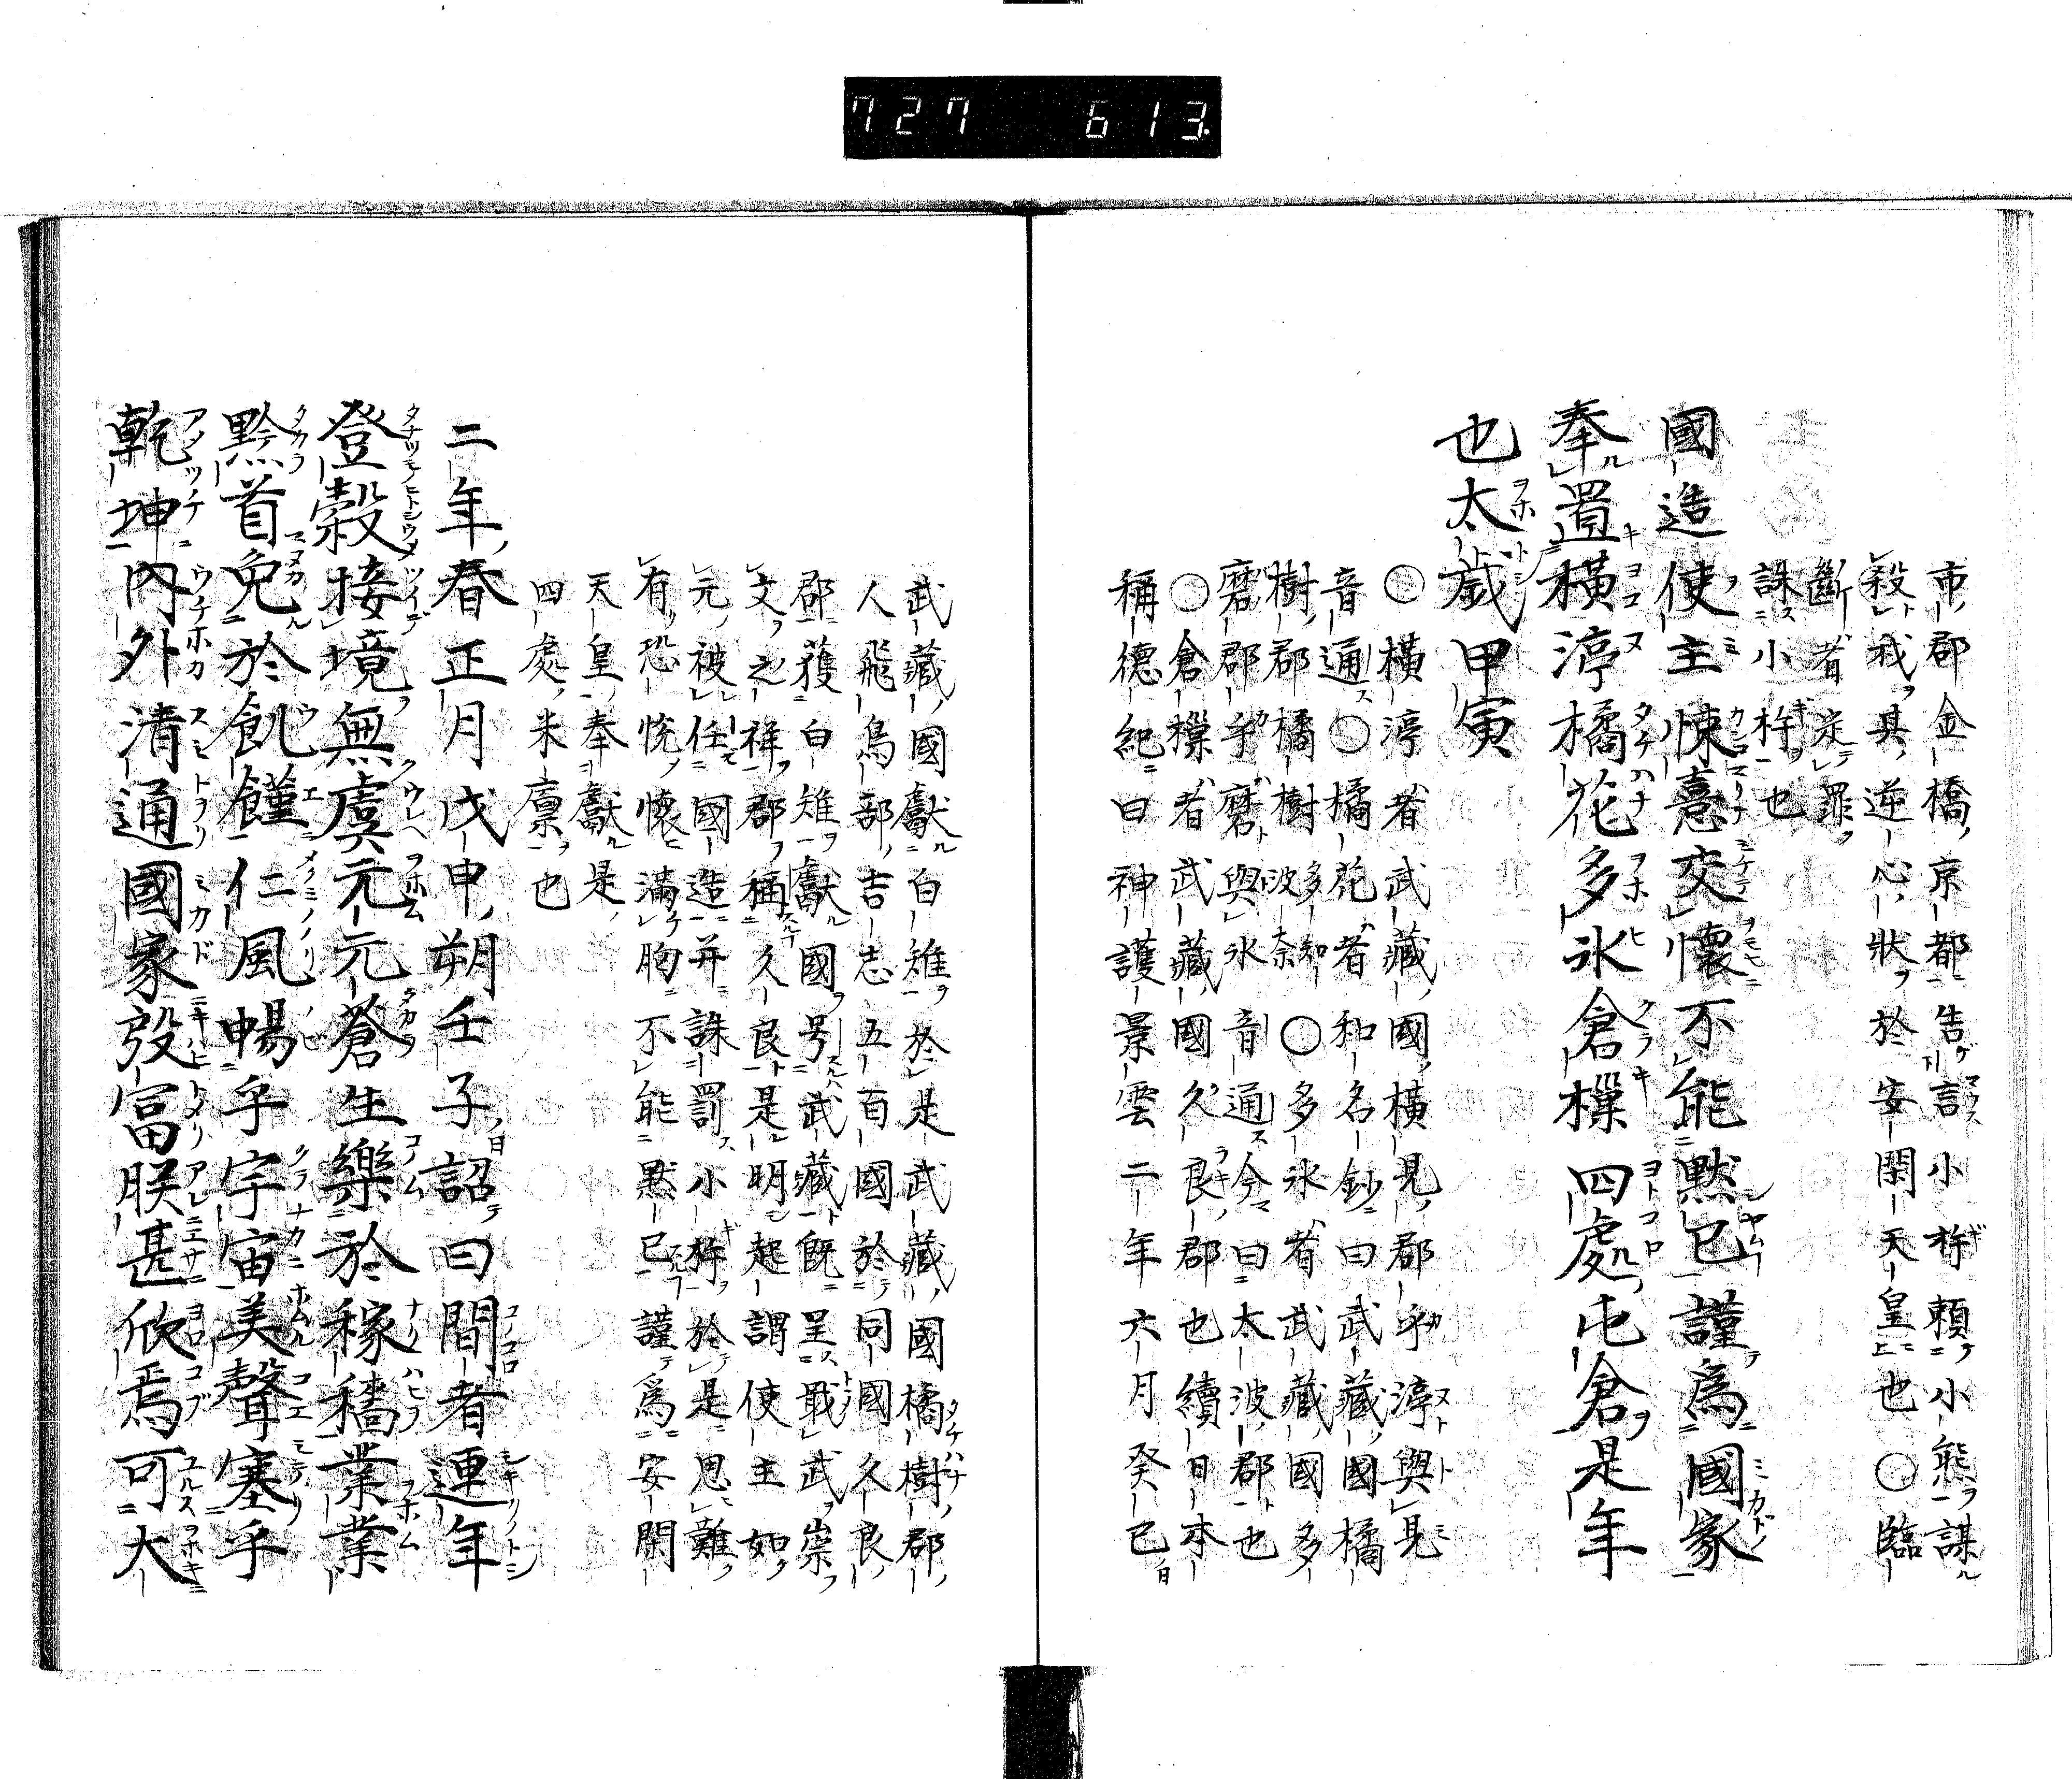 727 613
市郡金橋京都告言小杵頼小熊謀
殺我其逆心狀於安閑天皇也○臨
斷者定罪
誅小杵也
國造使主悚憙交懷不能默已謹爲國家
奉置橫渟橘花多氷倉樔四處屯倉是年
也太歲甲寅
○橫渟者武藏國橫見郡乎渟與見
音通○橘花者和名鈔曰武藏國橘
樹郡橘樹多知波奈○多氷者武藏國多
磨郡乎磨與氷音通今曰太波郡也
○倉樔者武藏國久良郡也續日本
稱德紀曰神護景雲二年六月癸巳
武藏國獻白雉於是武藏國橘樹郡
人飛鳥部吉志五百國於同國久良
郡獲白雉獻國号武藏既呈戢武崇
文之祥郡稱久良是明起謂使主如
元被任國造并誅罰小杵於是思難
有恐悅懷滿胸不能默已謹爲安閑
天皇奉獻是
四處米廩也
二年春正月戊申朔壬子詔曰間者連年
登穀接境無虞元元蒼生樂於稼穡業業
黔首免於飢饉仁風暢乎宇宙美聲塞乎
乾坤內外清通國家殷富朕甚欣焉可大